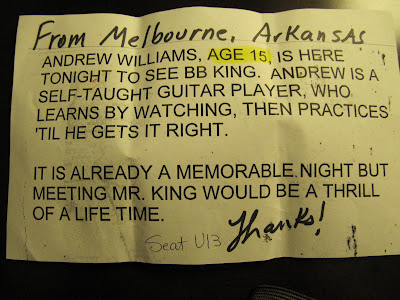 From Melbourne, Arkansas
ANDREW WILLIAMS, AGE 15, IS HERE
TONIGHT TO SEE BB KING. ANDREW IS A
SELF-TAUGHT GUITAR PLAYER, WHO
LEARNS BY WATCHING, THEN PRACTICES
'TIL HE GETS IT RIGHT.
IT IS ALREADY A MEMORABLE NIGHT BUT
MEETING MR. KING WOULD BE A THRILL
OF A LIFE TIME.
Thanks!
Seat U13